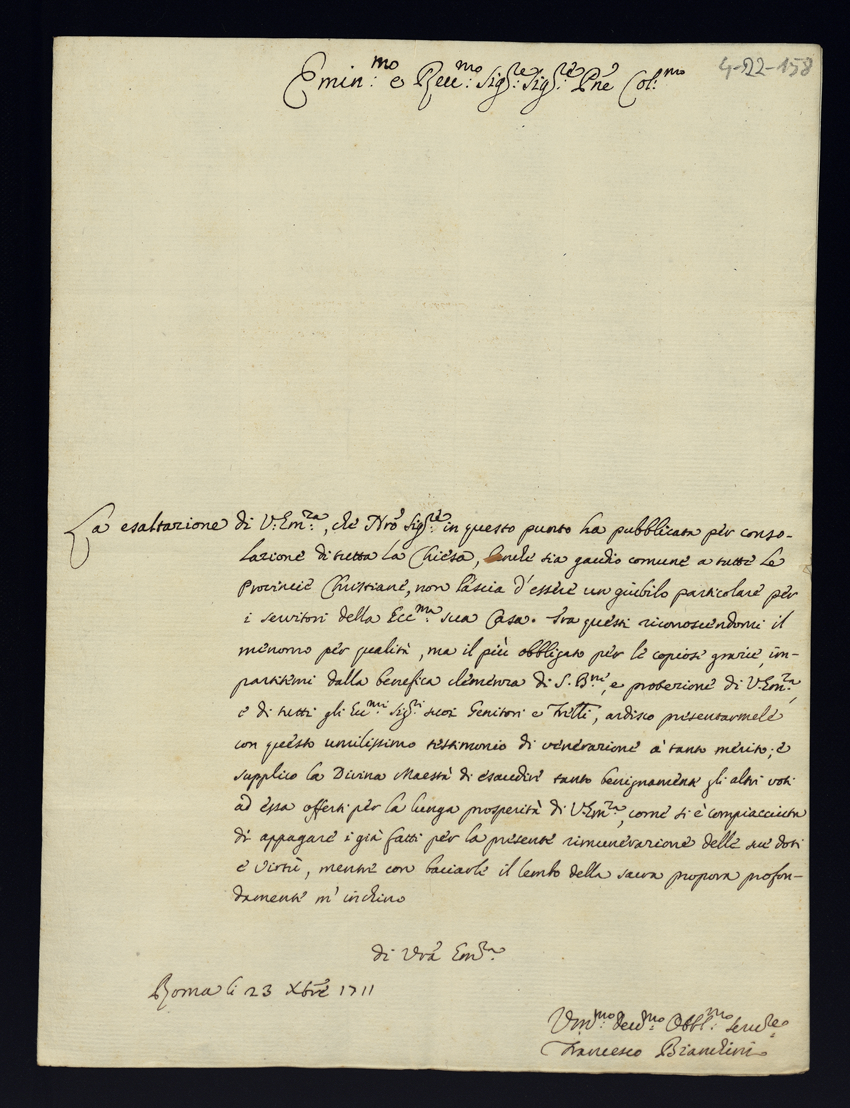 4-22-158
Emin:mo e Rev:mo Sig:re Sig:re Pne Col:mo
La esaltazione di V: Em:za, che Nro Sig:re in questo punto ha pubblicata per conso-
lazione di tutta la Chiesa, benche sia gaudio comune a tutte le
Provincie Christiane, non lascia d'essere un giubilo particolare per
i servitori della Ecc:ma sua Casa. Fra questi riconoscendomi il
menomo per qualità, ma il più obbligato per le copiose grazie, im-
partitemi dalla benefica clemenza di S. B:ne, e protezione di V: Em:za,
e di tutti gli Ecc:mi Sig:ri suoi Genitori e Frlli, ardisco presentarmele
con questo umilissimo testimonio di venerazione à tanto merito; e
supplico la Divina Maestà di esaudire tanto benignamente gli altri voti
ad essa offerti per la lunga prosperità di V: Em:za, come si è compiacciuta
di appagare i già fatti per la presente rimunerazione delle sue doti
e virtù, mentre con baciarle il lembo della sacra propora profon-
damente m'inchino
di Vrã Em:za
Roma li 23 Xbre 1711
Um:mo dev:mo Obbl:mo Serv:re
Francesco Bianchini